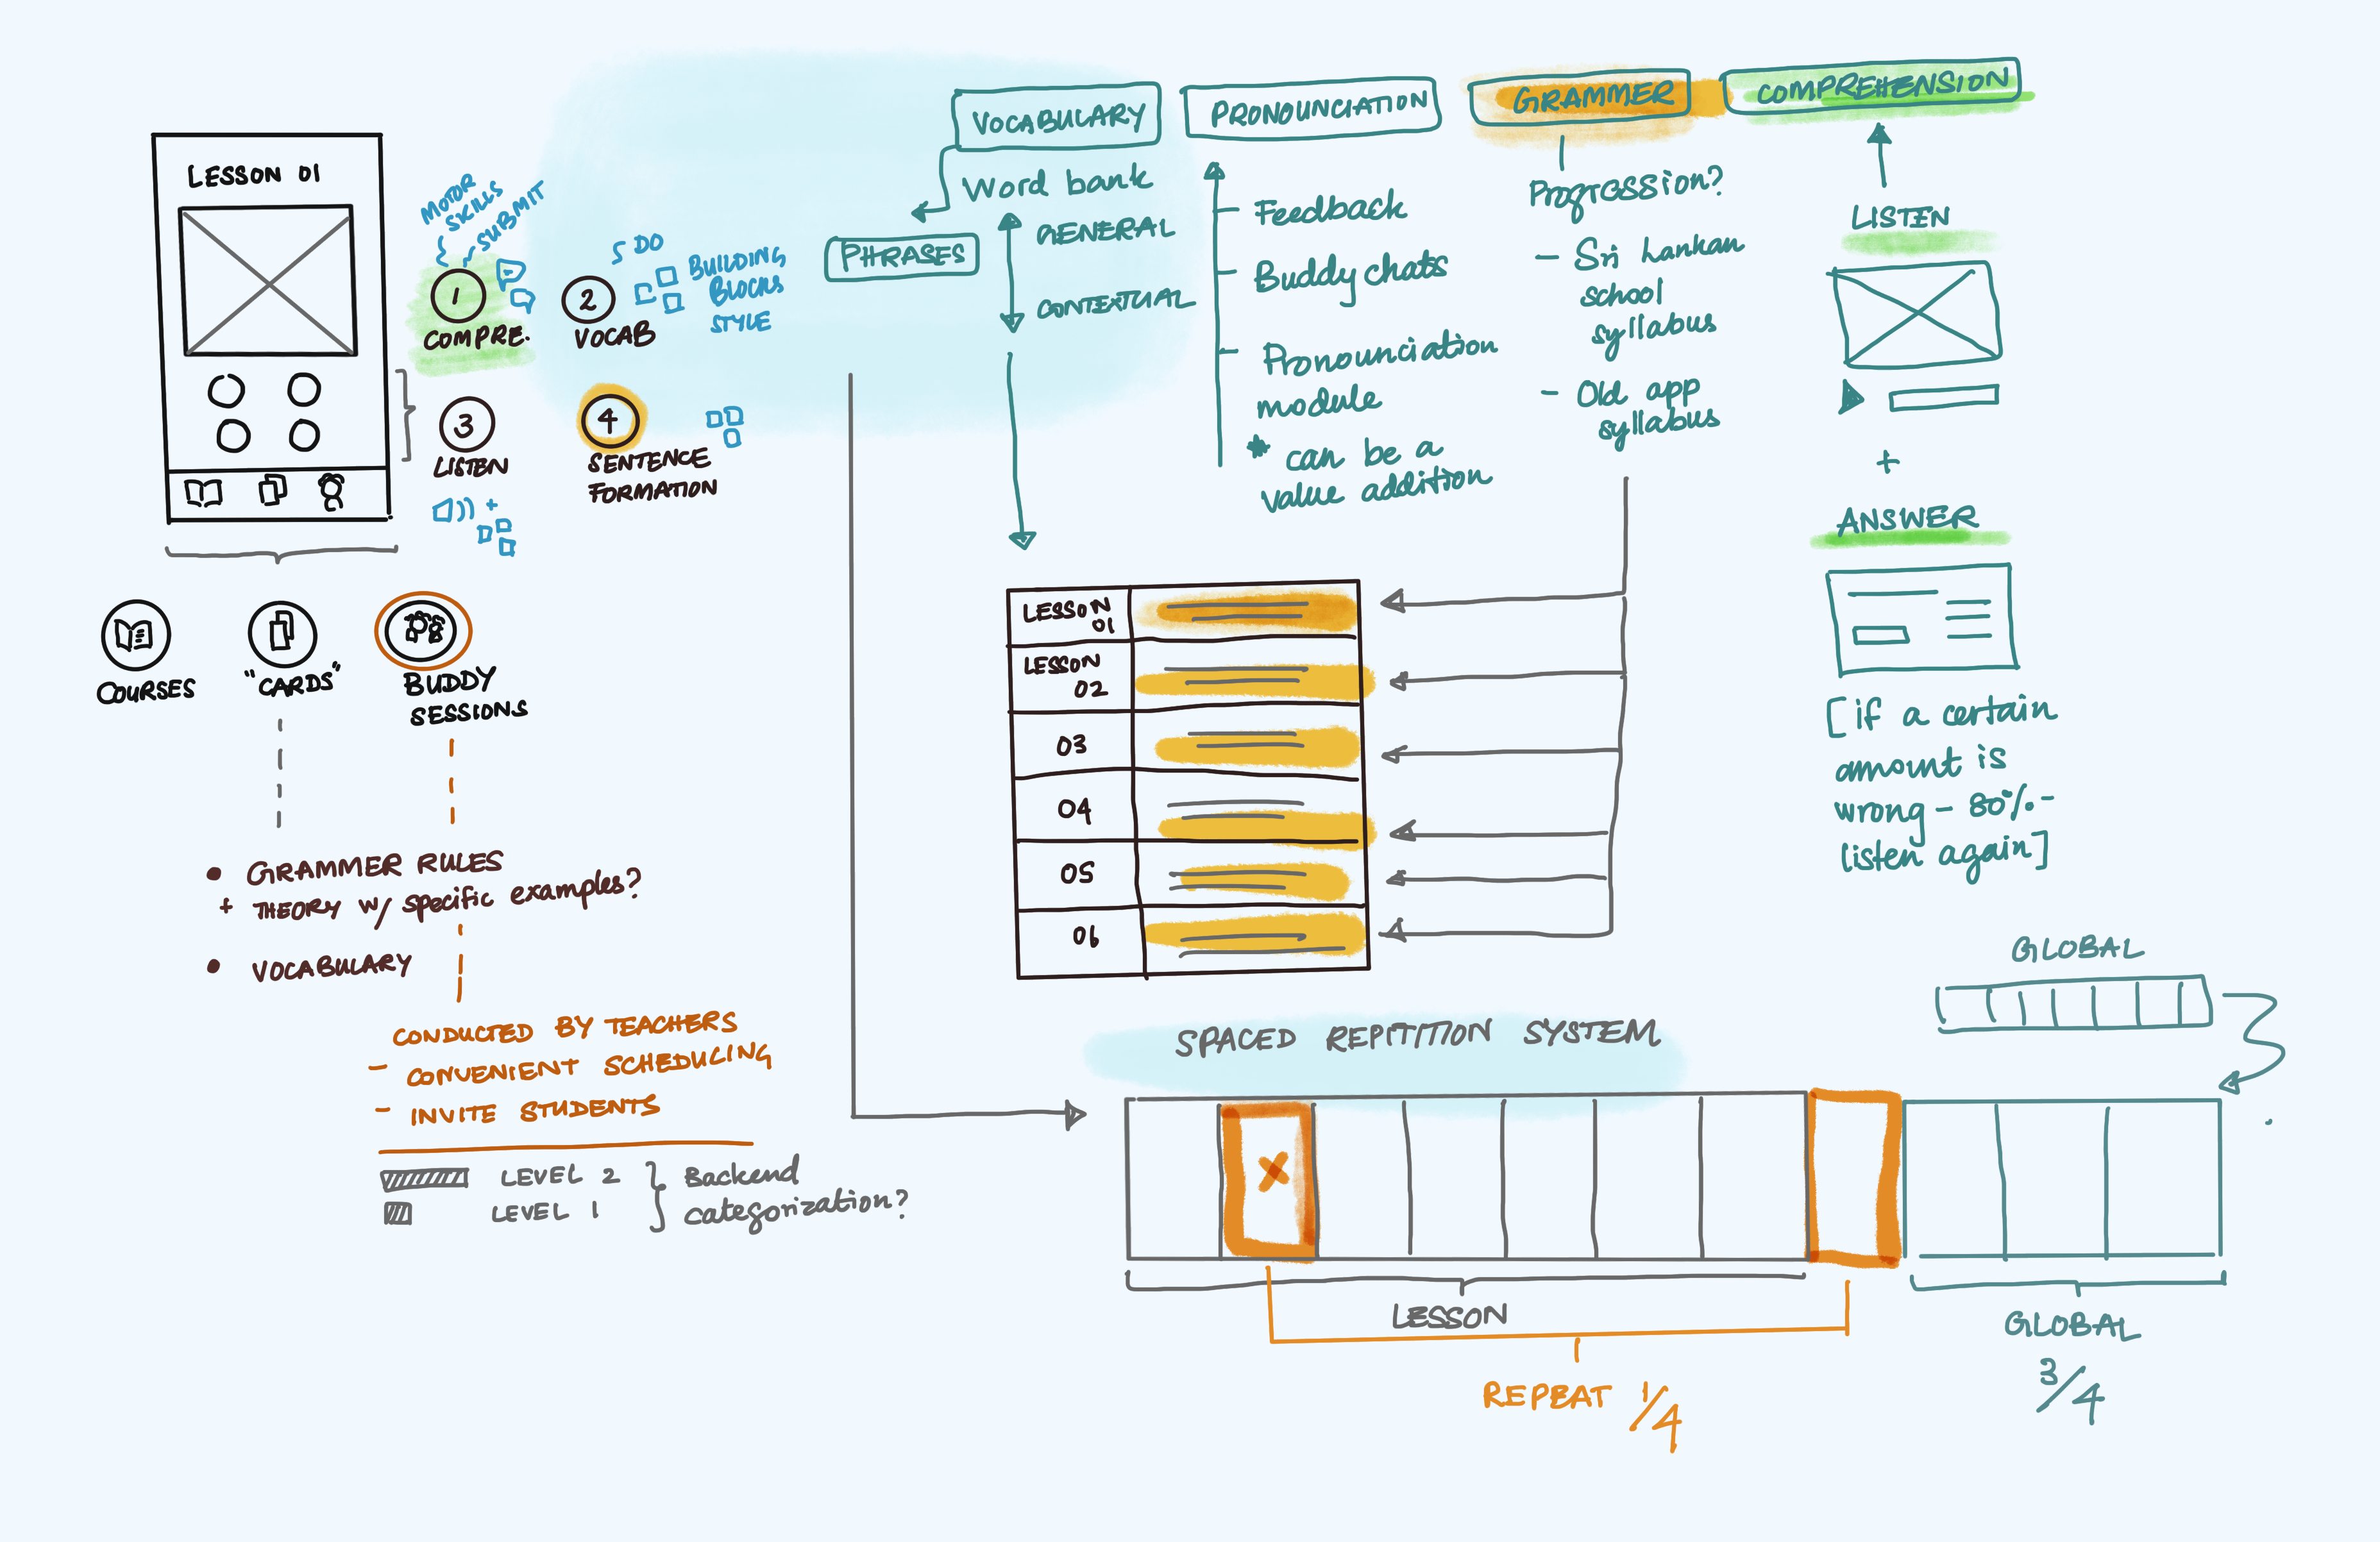 LESSON 01
MOTOR
SKILLS
SUBMIT
1
COMPRE.
2
VOCAB
5 DO
BUILDING
BLOCKS
STYLE
3
LISTEN
+
4
SENTENCE
FORMATION
COURSES
"CARDS"
BUDDY
SESSIONS
• GRAMMER RULES
+ THEORY W/ specific examples?
• VOCABULARY
CONDUCTED BY TEACHERS
- CONVENIENT SCHEDULING
- INVITE STUDENTS
LEVEL 2
LEVEL 1
Backend
categorization?
VOCABULARY
Word bank
PHRASES
GENERAL
CONTEXTUAL
PRONOUNCIATION
- Feedback
- Buddy chats
- Pronounciation
module
* can be a
value addition
GRAMMER
Progression?
- Sri Lankan
school
syllabus
- Old app
syllabus
COMPREHENSION
LISTEN
+
ANSWER
[if a certain
amount is
wrong - 80% -
listen again]
LESSON
01
LESSON
02
03
04
05
06
SPACED REPITITION SYSTEM
GLOBAL
X
LESSON
REPEAT 1/4
GLOBAL
3/4